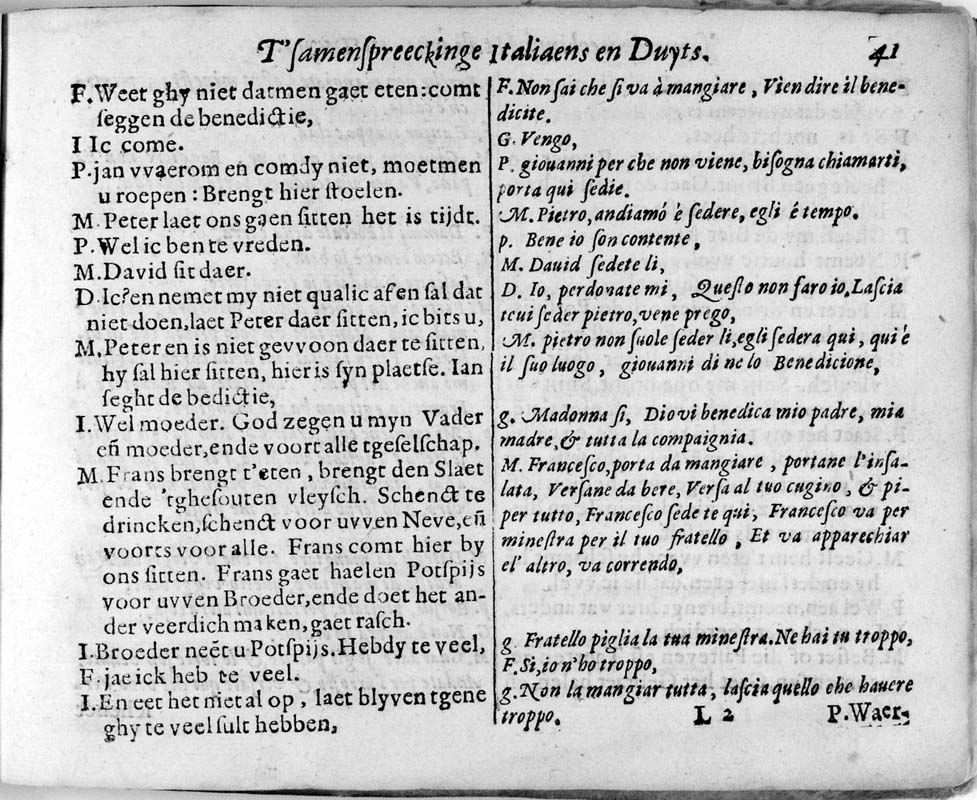 T'ſamenſpreeckinge Italiaens en Duyts. 41
F. Weet ghy niet datmen gaet eten: comt
ſeggen de benedictie,
I Ic come.
P. jan vvaerom en comdy niet, moetmen
u roepen : Brengt hier ſtoelen.
M. Peter laet ons gaen ſitten het is tijdt.
P. Wel ic ben te vreden.
M. David ſit daer.
D. Ic? en nemet my niet qualic af en ſal dat
niet doen, laet Peter daer ſitten, ic bits u,
M. Peter en is niet gevvoon daer te ſitten,
hy ſal hier ſitten, hier is ſyn plaetſe. Ian
ſeght de bedictie,
I. Wel moeder. God zegen u myn Vader
en̄ moeder, ende voort alle tgeſelſchap.
M. Frans brengt t'eten, brengt den Slaet
ende 'tgheſouten vleyſch. Schenct te
drincken, ſchenct voor uvven Neve, en̄
voorts voor alle. Frans comt hier by
ons ſitten. Frans gaet haelen Potſpijs
voor uvven Broeder, ende doet het an-
der veerdich maken, gaet raſch.
I. Broeder neēt u Potſpijs. Hebdy te veel,
F. jae ick heb te veel.
I. En eet het niet al op, laet blyven tgene
ghy te veel ſult hebben,
F. Non ſai che ſi va à mangiare, Vien dire il bene-
dicite.
G. Vengo,
P. giouanni per che non viene, biſogna chiamarti,
porta qui ſedie.
M. Pietro, andiamó è ſedere, egli é tempo.
p. Bene io ſon contente,
M. Dauid ſedete li,
D. Io, perdonate mi, Queſto non faro io. Laſcia
tcui ſeder pietro, vene prego,
M. pietro non ſuole ſeder li, egli ſedera qui, qui è
il ſuo luogo, giouanni di ne lo Benedicione,
g. Madonna ſi, Dio vi benedica mio padre, mia
madre, & tutta la compaignia.
M. Franceſco, porta da mangiare, portane l'inſa-
lata, Verſane da bere, Verſa al tuo cugino, & pi-
per tutto, Franceſco ſede te qui, Franceſco va per
mineſtra per il tuo fratello, Et va apparechiar
el' altro, va correndo,
g. Fratello piglia la tua mineſtra. Ne hai tu troppo,
F. Si, io n'ho troppo,
g. Non la mangiar tutta, laſcia quello che hauere
troppo.
L 2 P. Waer-